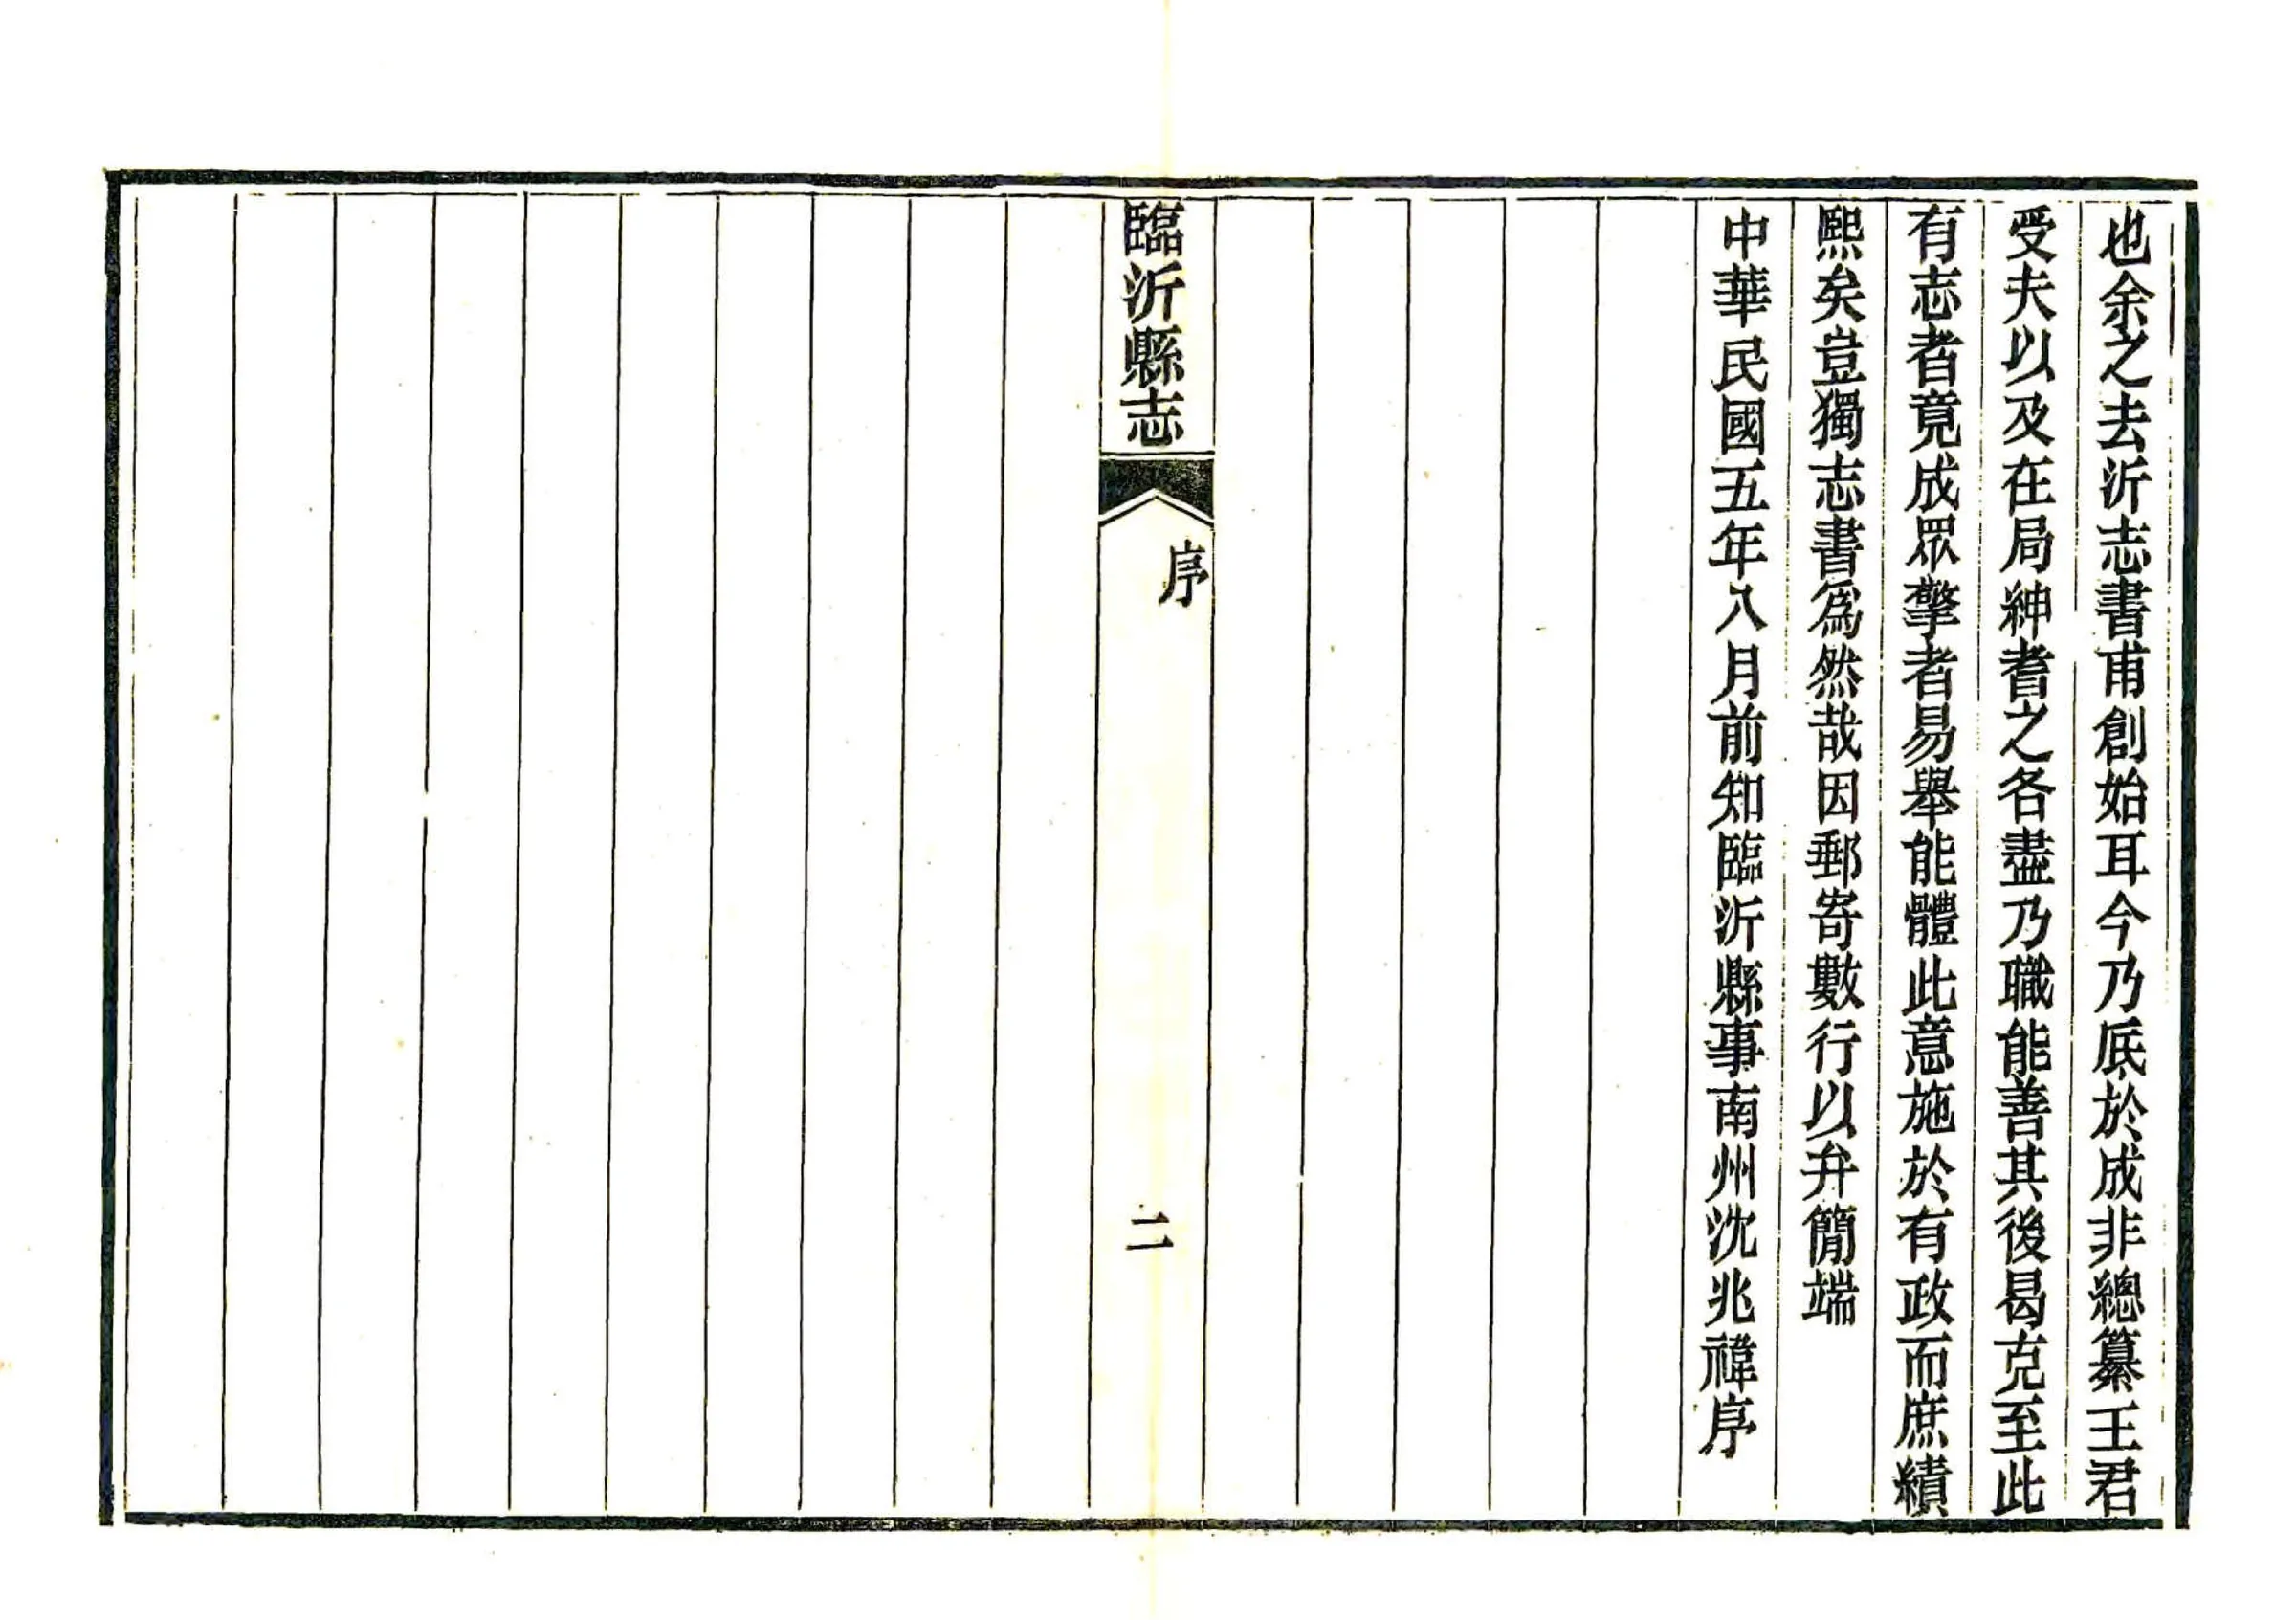 也余之去沂志書甫創始耳今乃厎於成非總纂王君
受夫以及在局紳耆之各盡乃職能善其後曷克至此
有志者竟成眾擎者易舉能體此意施於有政而庶績
熙矣豈獨志書為然哉因郵寄數行以弁簡端
中華民國五年八月前知臨沂縣事南州沈兆禕序
臨沂縣志
序
二